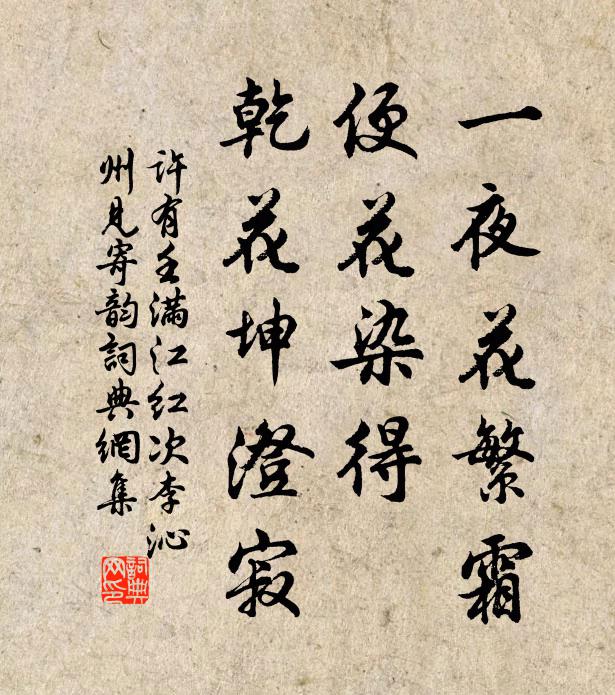 一夜花繁霜
便花染得
乾花坤澄寂
許有壬滿江红次李沁
州見寄韵詞典網集
詞典
网印